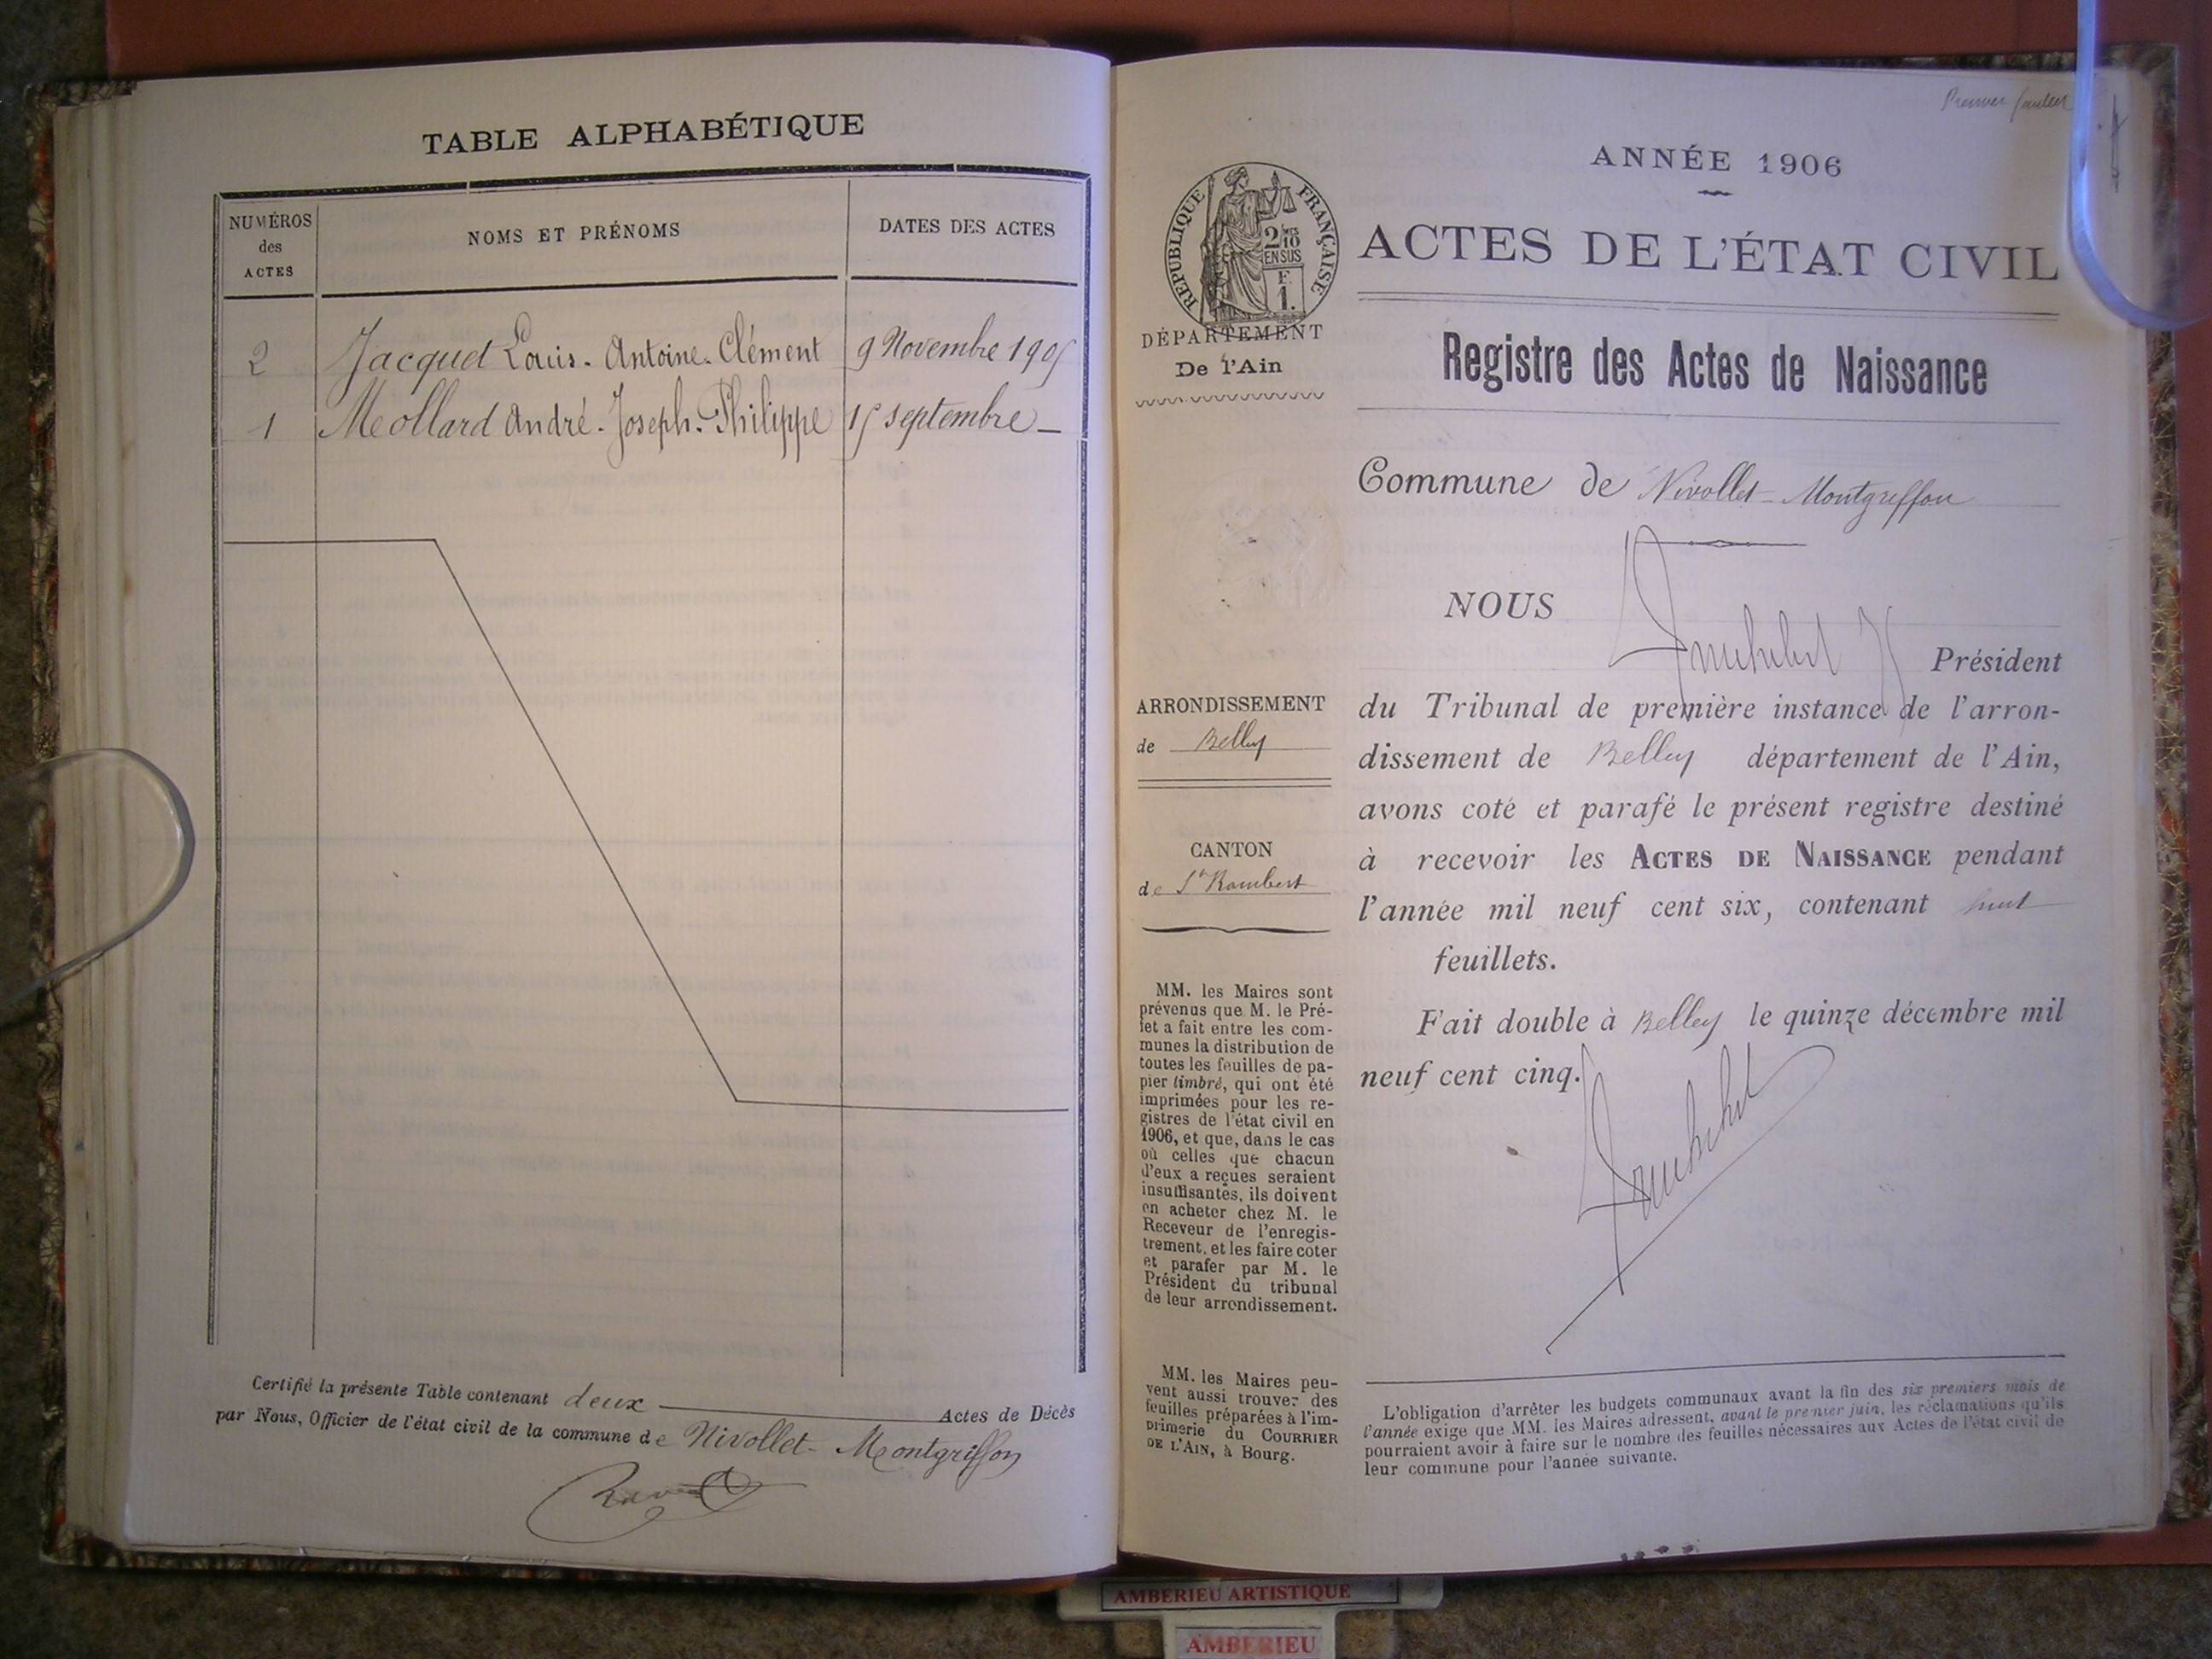 TABLE ALPHABÉTIQUE
NUMÉROS
des
ACTES
NOMS ET PRÉNOMS
DATES DES ACTES
2 Jacquet Louis-Antoine-Clément 9 Novembre 1905
1 Meollard André-Joseph-Philippe 15 septembre —
Certifié la présente Table contenant deux Actes de Décès
par Nous, Officier de l'état civil de la commune de Nivollet-Montgriffon
Premier feuillet
ANNÉE 1906
ACTES DE L'ÉTAT CIVIL
RÉPUBLIQUE FRANÇAISE
2/10
EN SUS
F.
1.
DÉPARTEMENT
De l'Ain
Registre des Actes de Naissance
Commune de Nivollet-Montgriffon
NOUS
Président
du Tribunal de première instance de l'arron-
dissement de Belley département de l'Ain,
avons coté et parafé le présent registre destiné
à recevoir les ACTES DE NAISSANCE pendant
l'année mil neuf cent six, contenant huit
feuillets.
Fait double à Belley le quinze décembre mil
neuf cent cinq.
ARRONDISSEMENT
de Belley
CANTON
de St Rambert
MM. les Maires sont
prévenus que M. le Pré-
fet a fait entre les com-
munes la distribution de
toutes les feuilles de pa-
pier timbré, qui ont été
imprimées pour les re-
gistres de l'état civil en
1906, et que, dans le cas
où celles que chacun
d'eux a reçues seraient
insuffisantes, ils doivent
en acheter chez M. le
Receveur de l'enregis-
trement, et les faire coter
et parafer par M. le
Président du tribunal
de leur arrondissement.
MM. les Maires peu-
vent aussi trouver des
feuilles préparées à l'im-
primerie du COURRIER
DE L'AIN, à Bourg.
L'obligation d'arrêter les budgets communaux avant la fin des six premiers mois de
l'année exige que MM. les Maires adressent, avant le premier juin, les réclamations qu'ils
pourraient avoir à faire sur le nombre des feuilles nécessaires aux Actes de l'état civil de
leur commune pour l'année suivante.
AMBERIEU ARTISTIQUE
AMBERIEU